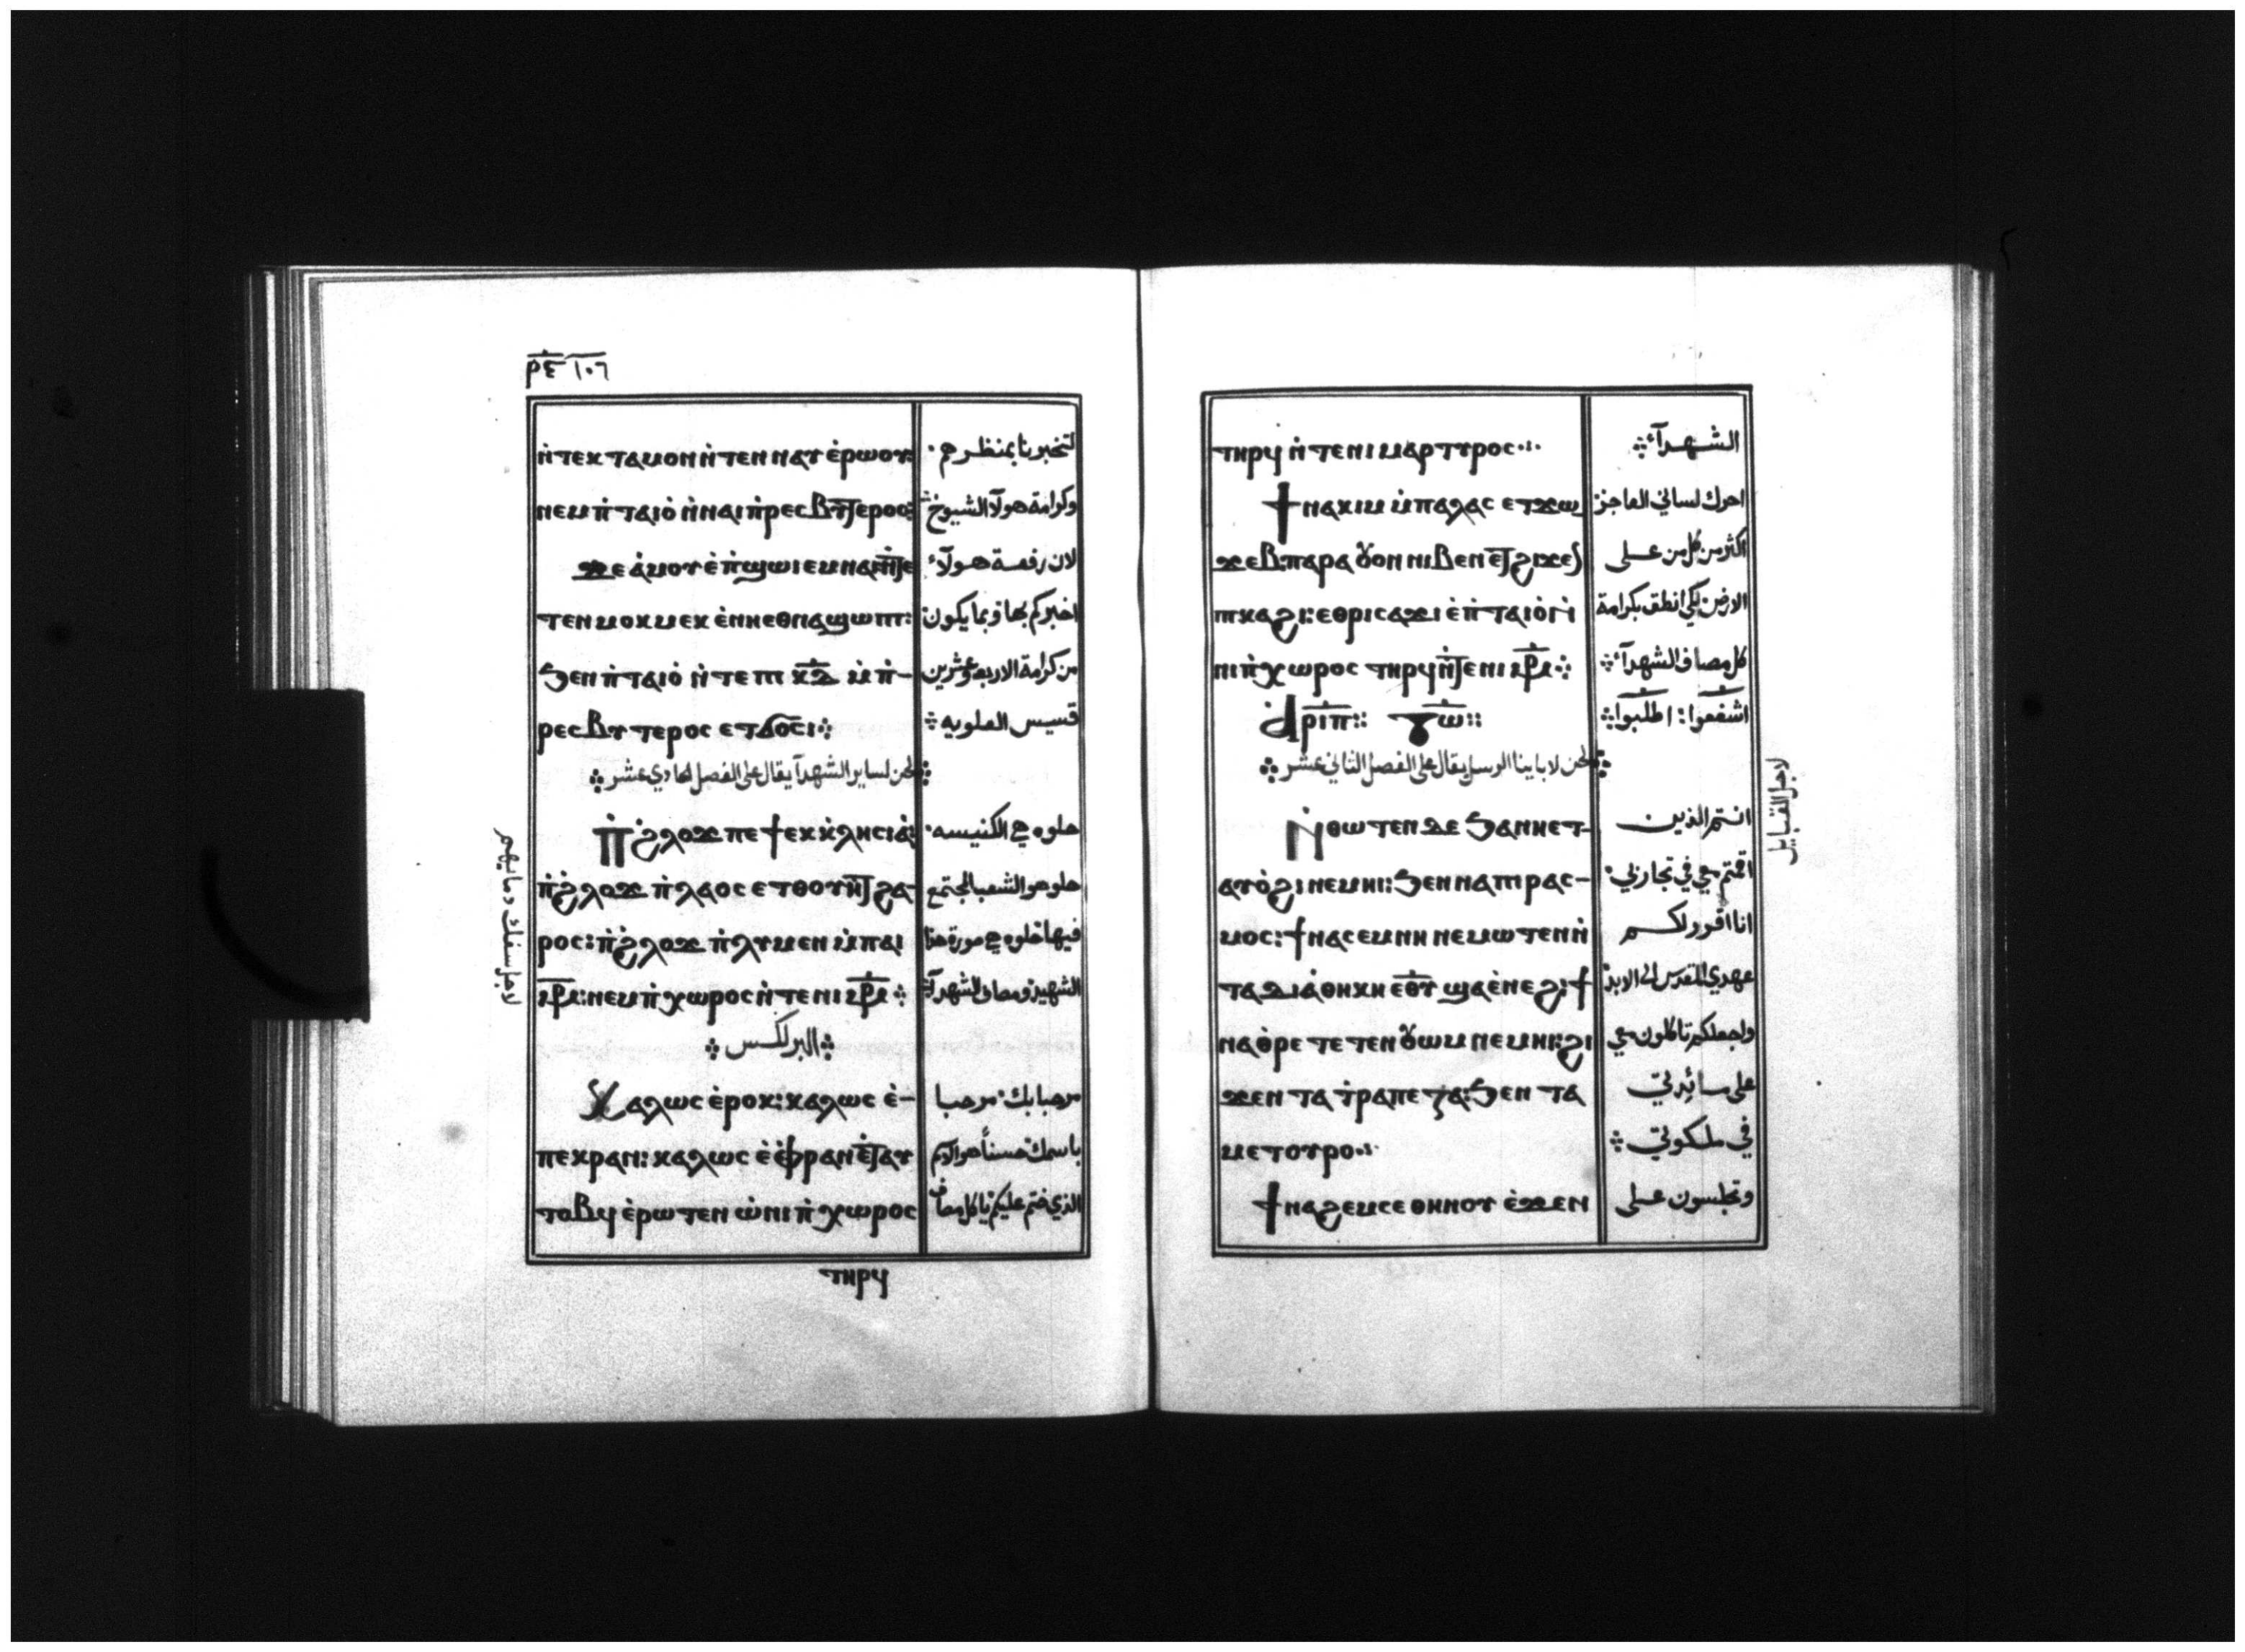 ⲣ̅ⲋ̅ ١٠٦
ⲛ̀ⲧⲉⲕⲧⲁⲙⲟⲛ ⲛ̀ⲧⲉⲛⲛⲁⲩ ⲉ̀ⲣⲱⲟⲩ: لتخبرنا بمنظرهم
ⲛⲉⲙ ⲡ̀ⲧⲁⲓⲟ̀ ⲛ̀ⲛⲁⲓⲡ̀ⲣⲉⲥⲃⲩⲧⲉⲣⲟⲥ: وكرامة هولآ الشيوخ
ϫⲉ ⲁ̀ⲙⲟⲩ ⲉ̀ⲡ̀ϣⲱⲓ ⲉⲙⲛⲁⲓ لان رفعة هولآء
ⲧⲉⲛ ⲙⲟⲕⲙⲉⲕ ⲉ̀ⲛⲏⲉⲑⲛⲁϣⲱⲡⲓ: اخبركم بها وبما يكون
ϧⲉⲛ ⲡ̀ⲧⲁⲓⲟ̀ ⲛ̀ⲧⲉ ⲡⲓ ⲕ̅ⲇ̅ ⲙ̀ⲡ̀- من كرامة الاربعه وعشرين
ⲣⲉⲥⲃⲩⲧⲉⲣⲟⲥ ⲉⲧϭⲟⲥⲓ قسيس العلويه
لحن لساير الشهدآ يقال على الفصل الحادي عشر
ⲡ̀ϩ̀ⲗⲟϫ ⲡⲉ ϯⲉⲕⲕ̀ⲗⲏⲥⲓⲁ̀: حلوه هي الكنيسه
ⲡ̀ϩ̀ⲗⲟϫ ⲡ̀ⲗⲁⲟⲥ ⲉⲧⲑⲟⲩⲏⲧ ϩⲁ- حلو هو الشعب المجتمع
ⲣⲟⲥ: ⲡ̀ϩ̀ⲗⲟϫ ⲡ̀ⲗⲩⲙⲉⲛ ⲙ̀ⲡⲁⲓ فيها حلوه هي صورة هذا
ⲙ̅ⲣ̅: ⲛⲉⲙ ⲡ̀ⲭⲱⲣⲟⲥ ⲛ̀ⲧⲉ ⲛⲓ ⲙ̅ⲣ̅ الشهيد ومصاف الشهدآ
لاجل سفك دمايهم
البرلكسس
ⲕⲁⲗⲱⲥ ⲉ̀ⲣⲟⲕ: ⲕⲁⲗⲱⲥ ⲉ̀- مرحبا بك مرحبا
ⲡⲉⲕⲣⲁⲛ: ⲕⲁⲗⲱⲥ ⲉ̀ⲫ̀ⲣⲁⲛ ⲉ̀ⲧⲁⲩ باسمك حسناً هو الاسم
ⲧⲟⲃϥ ⲉ̀ⲣⲱⲧⲉⲛ ⲱ̀ ⲛⲓⲡ̀ⲭⲱⲣⲟⲥ الذي ختم عليكم يا كل مصاف
ⲧⲏⲣϥ
ⲧⲏⲣϥ ⲛ̀ⲧⲉ ⲛⲓⲙⲁⲣⲧⲩⲣⲟⲥ الشهدآء
ϯⲛⲁⲕⲓⲙ ⲙ̀ⲡⲁⲗⲁⲥ ⲉⲧϫⲱ احرك لساني العاجز
ϫⲉⲃ: ⲡⲁⲣⲁ ⲟⲩⲟⲛ ⲛⲓⲃⲉⲛ ⲉⲧϩⲓϫⲉⲛ اكثر من كل من على
ⲡⲕⲁϩⲓ: ⲉⲑⲣⲓⲥⲁϫⲓ ⲉ̀ⲡ̀ⲧⲁⲓⲟ̀ ⲛ̀ الارض لكي انطق بكرامة
ⲛⲓⲡ̀ⲭⲱⲣⲟⲥ ⲧⲏⲣϥ ⲛ̀ⲧⲉ ⲛⲓ ⲙ̅ⲣ̅ كل مصاف الشهدآء
ⲁ̀ⲣⲓⲡ̅:: ⲧⲱ̅:: اشفعوا: اطلبوا
لحن لابابينا الرسل يقال على الفصل الثاني عشر
ⲛ̀ⲑⲱⲧⲉⲛ ⲇⲉ ϧⲁⲛⲛⲉⲧ- انتم الذين
ⲁⲩⲟ̀ϩⲓ ⲛⲉⲙⲏⲓ: ϧⲉⲛ ⲛⲁⲡⲓⲣⲁⲥ- اقمتم معي في تجاربي
ⲙⲟⲥ: ϯⲛⲁⲥⲉⲙⲛⲏ ⲛⲉⲙⲱⲧⲉⲛ ⲛ̀ انا اقرر لكم
ⲧⲁⲇⲓⲁ̀ⲑⲏⲕⲏ ⲉ̅ⲑ̅ⲩ̅ ϣⲁ ⲉ̀ⲛⲉϩ: ϯ عهدي المقدس الى الابد
ⲛⲁⲑ̀ⲣⲉⲧⲉⲧⲉⲛⲟⲩⲱⲙ ⲛⲉⲙⲏⲓ: ϩⲓ واجعلكم تاكلون معي
ϫⲉⲛ ⲧⲁⲧ̀ⲣⲁⲡⲉⲍⲁ: ϧⲉⲛ ⲧⲁ على مائدتي
ⲙⲉⲧⲟⲩⲣⲟ في ملكوتي
ϯⲛⲁϩⲉⲙⲥⲉ ⲑⲏⲛⲟⲩ ⲉ̀ϫⲉⲛ وتجلسون على
لاجل القبايل